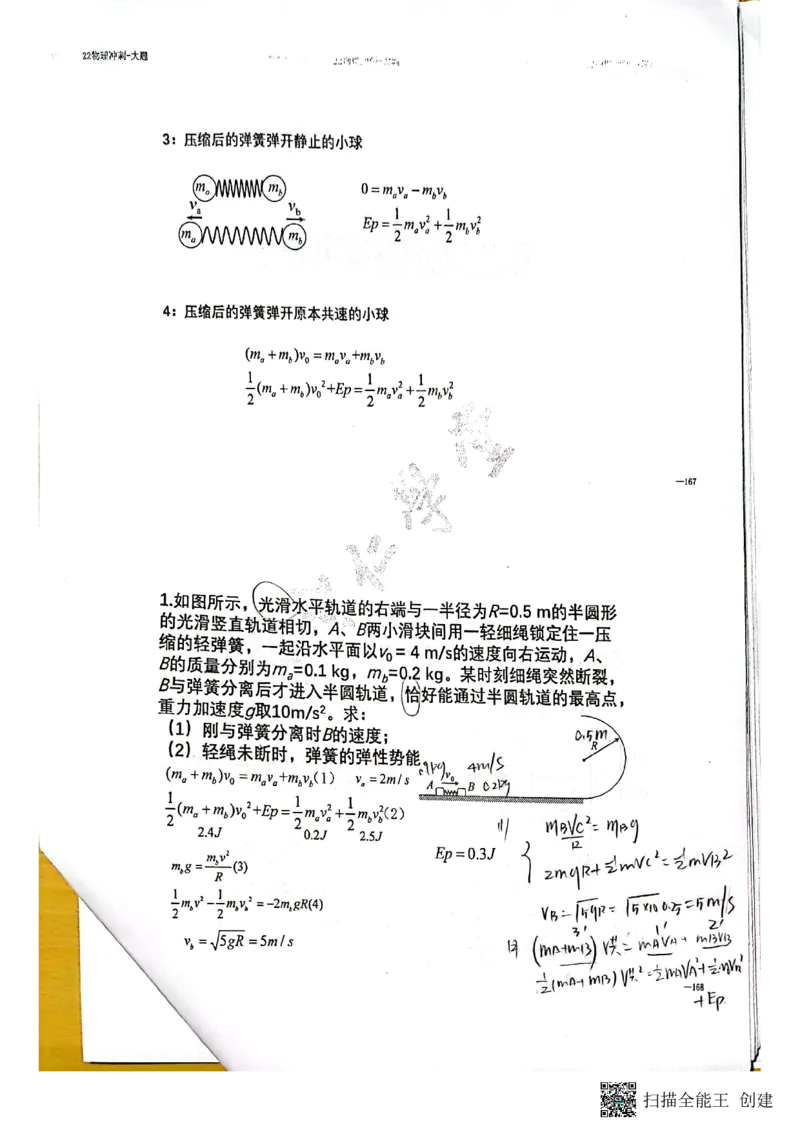 22物理冲刺-大题
3：压缩后的弹簧弹开静止的小球
mₐ m_b
vₐ v_b
mₐ m_b
0=mₐvₐ-m_bv_b
Ep=1/2mₐvₐ²+1/2m_bv_b²
4：压缩后的弹簧弹开原本共速的小球
(mₐ+m_b)v₀=mₐvₐ+m_bv_b
1/2(mₐ+m_b)v₀²+Ep=1/2mₐvₐ²+1/2m_bv_b²
—167
1.如图所示，光滑水平轨道的右端与一半径为R=0.5 m的半圆形
的光滑竖直轨道相切，A、B两小滑块间用一轻细绳锁定住一压
缩的轻弹簧，一起沿水平面以v₀ = 4 m/s的速度向右运动，A、
B的质量分别为mₐ=0.1 kg，m_b=0.2 kg。某时刻细绳突然断裂，
B与弹簧分离后才进入半圆轨道，恰好能通过半圆轨道的最高点，
重力加速度g取10m/s²。求：
（1）刚与弹簧分离时B的速度；
（2）轻绳未断时，弹簧的弹性势能。
0.5m
R
4m/s
A v₀ B 0.2kg
(mₐ+m_b)v₀=mₐvₐ+m_bv_b(1) vₐ=2m/s
1/2(mₐ+m_b)v₀²+Ep=1/2mₐvₐ²+1/2m_bv_b²(2)
2.4J 0.2J 2.5J
Ep=0.3J
m_bg=m_bv²/R(3)
1/2m_bv²-1/2m_bv_b²=-2m_bgR(4)
v_b=√5gR=5m/s
(1) mBVC²/R=mBg
2mgR+1/2mVC²=1/2mVB²
VB=√5gR=√5×10×0.5=5m/s
3' 1' 2'
(mA+mB)V共=mAVA+mBVB
1/2(mA+mB)V共²=1/2mAVA²+1/2mVB²
—168
+Ep
扫描全能王 创建